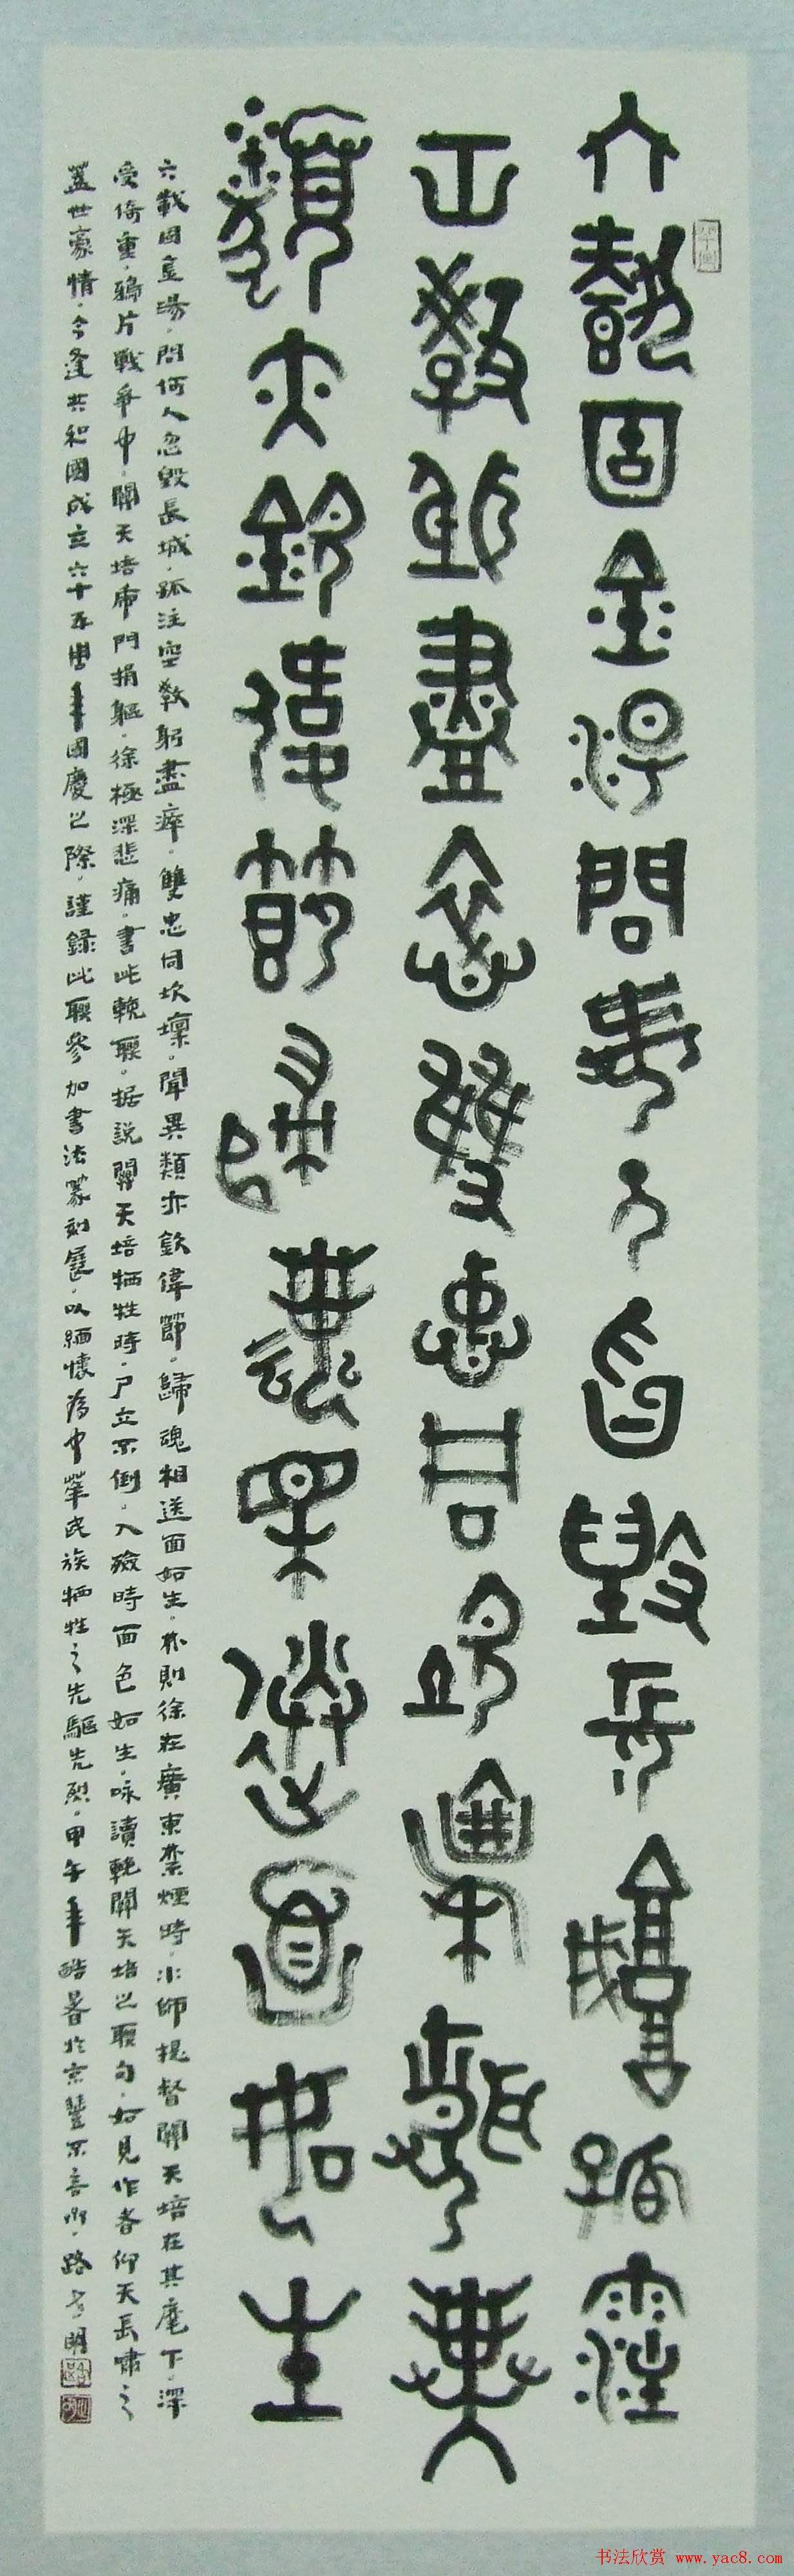 六載固金湯問何人忽毀長城孤注空
正教躬盡瘁雙忠同坎壈聞異
類亦欽偉節歸魂相送面如生
六載固金湯，問何人忽毀長城，孤注空教躬盡瘁，雙忠同坎壈，聞異類亦欽偉節，歸魂相送面如生。林則徐在廣東禁煙時，水師提督關天培在其麾下，深
受倚重，鴉片戰爭中，關天培虎門捐軀，徐極深悲痛，書此輓聯。据説關天培犧牲時，尸立不倒，入殮時面色如生，咏讀輓關天培之聯句，如見作者仰天長嘯之
蓋世豪情，今逢共和國成立六十五周年國慶之際，謹錄此聯參加書法篆刻展，以緬懷為中華民族犧牲之先驅先烈，甲午年酷暑於京豐不言齋，路
書法欣赏 www.yac8.com